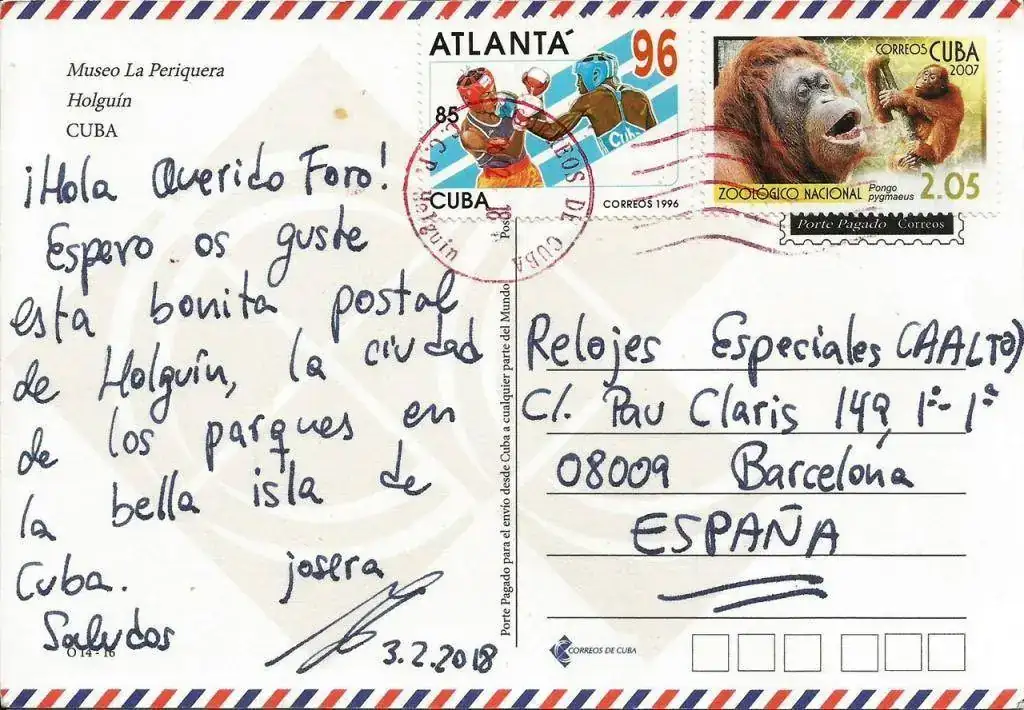 Museo La Periquera
Holguín
CUBA
¡Hola Querido Foro!
Espero os guste
esta bonita postal
de Holguín, la ciudad
de los parques en
la bella isla de
Cuba. josera
Saludos
3.2.2018
O 14 - 16
ATLANTA´ 96
85
CUBA
Cuba
CORREOS 1996
CORREOS DE CUBA
Holguín
18
CORREOS CUBA
2007
ZOOLÓGICO NACIONAL Pongo
pygmaeus 2.05
Porte Pagado Correos
Porte Pagado para el envío desde Cuba a cualquier parte del Mundo
Relojes Especiales (AALTO)
C/. Pau Claris 149, 1º-1ª
08009 Barcelona
ESPAÑA
CORREOS DE CUBA